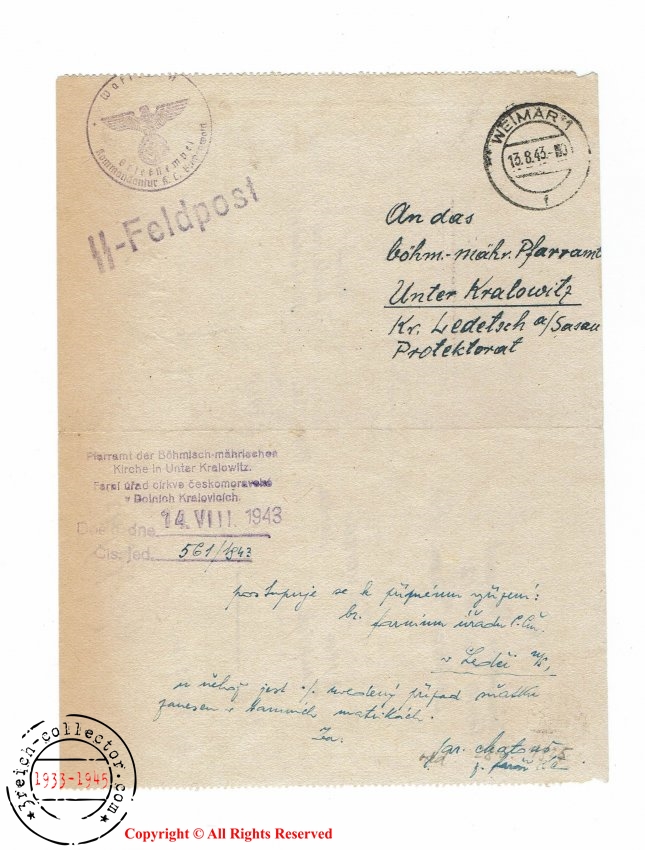 Waffen-SS
Briefstempel
Kommandantur K.L. Buchenwald
SS-Feldpost
WEIMAR 1
13.8.43
f
An das
böhm.-mähr. Pfarramt
Unter Kralowitz
Kr. Ledetsch a/Sasau
Protektorat
Pfarramt der Böhmisch-mährischen
Kirche in Unter Kralowitz.
Farní úřad církve českomoravské
v Dolních Kralovicích.
Došlo dne 14. VIII. 1943
Čís. jed. 561/1943
postupuje se k přímému vyřízení:
br. farnímu úřadu
v Ledči n/S.
u něhož jest uvedený případ sňatku
zanesen v tamních matrikách.
Za
3reich-collector.com
1933-1945
Copyright © All Rights Reserved